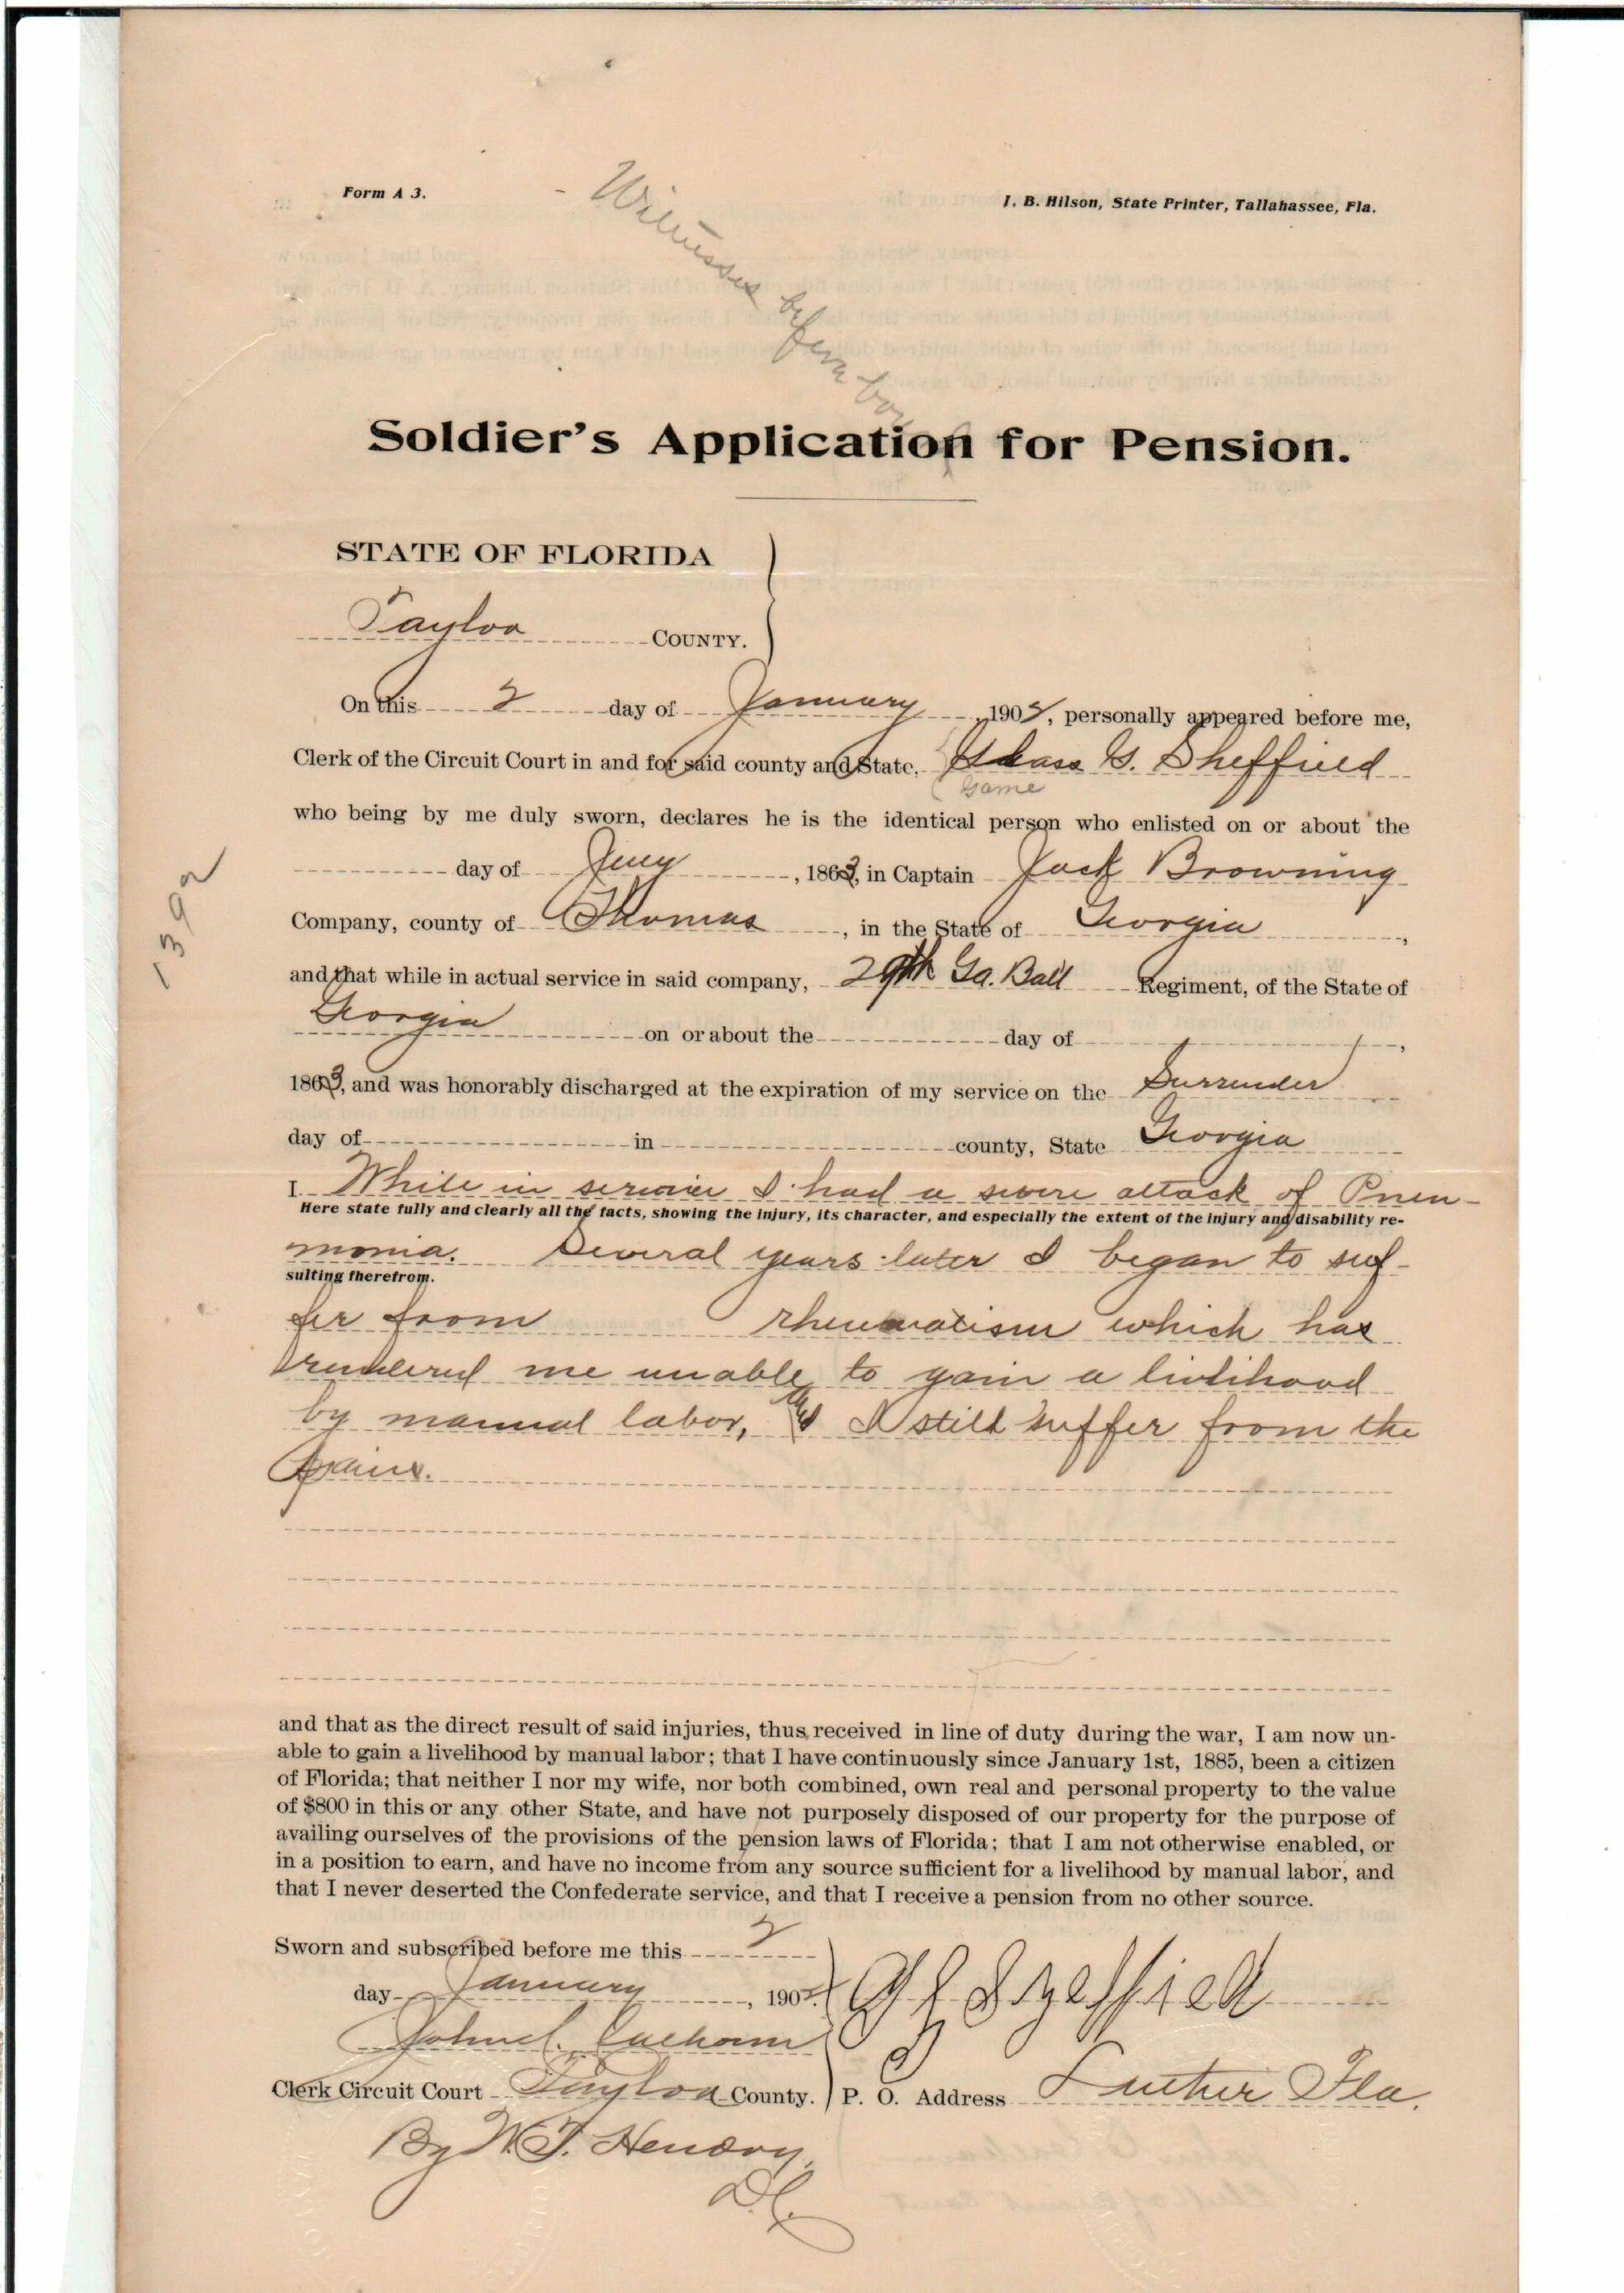 Form A 3.
I. B. Hilson, State Printer, Tallahassee, Fla.
Witnesses before
Soldier's Application for Pension.
STATE OF FLORIDA
Taylor COUNTY.
On this 2 day of January, 1902, personally appeared before me,
Clerk of the Circuit Court in and for said county and State, G. Sheffield
Game
who being by me duly sworn, declares he is the identical person who enlisted on or about the
day of, 1863, in Captain Jack Browning
Company, county of Thomas, in the State of Georgia,
and that while in actual service in said company, 29th Ga. Batt Regiment, of the State of
Georgia on or about the day of,
1863, and was honorably discharged at the expiration of my service on the Surrender
day of in county, State Georgia
I While in service I had a severe attack of Pneu-
Here state fully and clearly all the facts, showing the injury, its character, and especially the extent of the injury and disability re-
monia. Several years later I began to suf-
sulting therefrom.
fer from rheumatism which has
rendered me unable to gain a livlihood
by manual labor, and I still suffer from the
pains.
1392
and that as the direct result of said injuries, thus received in line of duty during the war, I am now un-
able to gain a livelihood by manual labor; that I have continuously since January 1st, 1885, been a citizen
of Florida; that neither I nor my wife, nor both combined, own real and personal property to the value
of $800 in this or any other State, and have not purposely disposed of our property for the purpose of
availing ourselves of the provisions of the pension laws of Florida; that I am not otherwise enabled, or
in a position to earn, and have no income from any source sufficient for a livelihood by manual labor, and
that I never deserted the Confederate service, and that I receive a pension from no other source.
Sworn and subscribed before me this 2
day January, 1902.
G G Sheffield
John C. Calhoun
Clerk Circuit Court Taylor County.
P. O. Address Luther Fla.
By W. T. Hendry,
D.C.